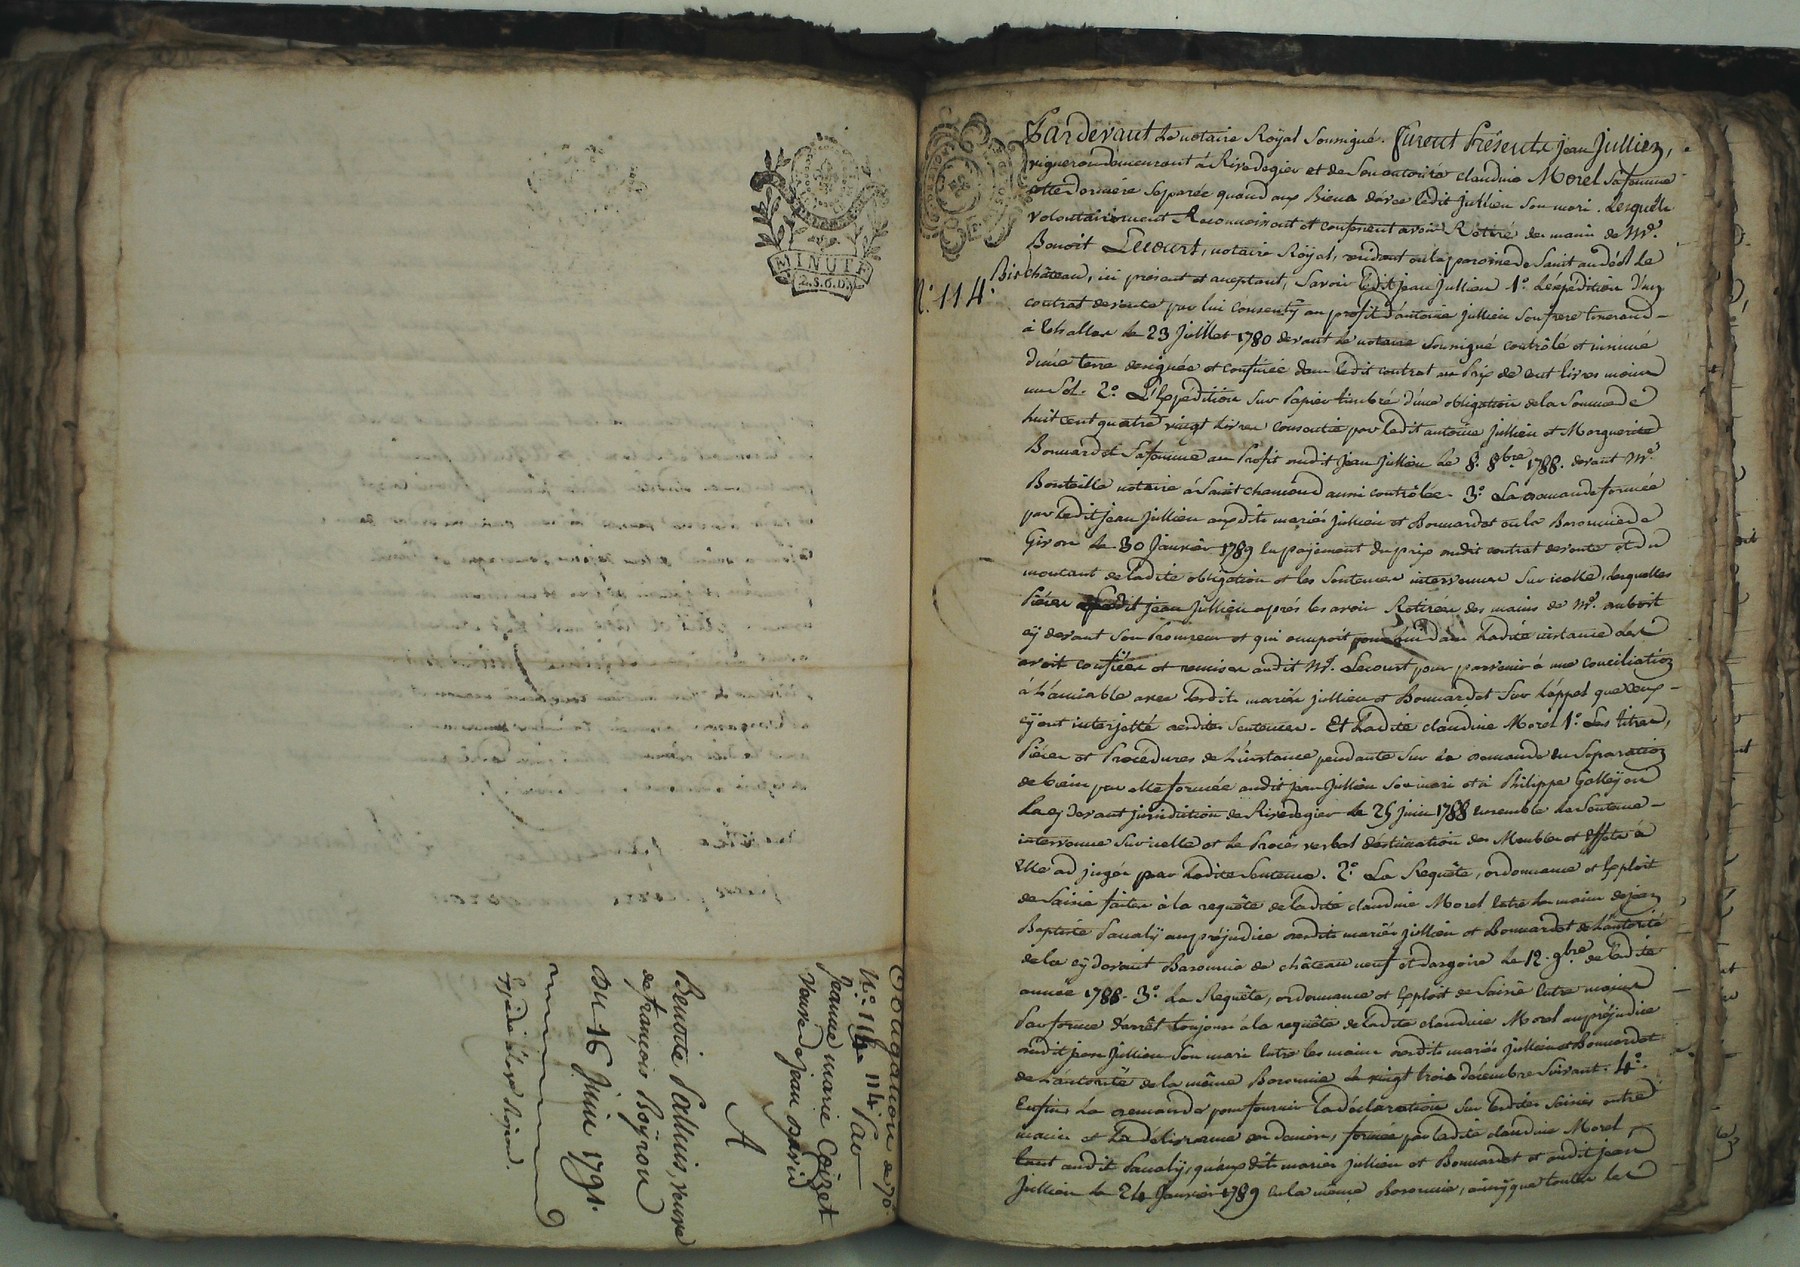 MINUTE
2.S.6.D.
Obligation de 70#
N.º 114 par
Jeanne marie Coizet
veuve de jean
A
Benoite Pallius, veuve
de françois Boÿron
Du 16 Juin 1791.
Expédié à lorge
N.º 114. Bis
Pardevant Le notaire Royal Soussigné. furent Présents jean Jullien,
vigneron demeurant à Rivedegier et de Son autorité claudine Morel Sa femme
cette derniére Séparée quand aux Biens davec ledit jullien Son mari. Lesquels
volontairement Reconnoissent et confessent avoir Retiré des mains de Mᵉ.
Benoit Lecourt, notaire Röyal, résidant en la paroisse de Saint andéol Le
château, ici présent et aceptant, Savoir ledit jean jullien 1º. L'éxpédition d'un
contrat de vente par lui Consentÿ au profit d'antoine jullien Son frere tisserand
à Echallas le 23 Juillet 1780 devant Le notaire Soussigné contrôlé et insinué
d'une terre designée et confinée dans ledit contrat au Prix de cent livres moins
un Sol. 2º. L'Expédition Sur Papier timbré d'une obligation de la Somme de
huit cent quatre vingt Livres consentie par ledit antoine Jullien et Marguerite
Bonnardet Sa femme au Profit dudit Jean Jullien le 8. 8bre 1788. devant Mᵉ.
Bonteille notaire à Saint chamond aussi contrôlée. 3º. La demande formée
par ledit jean Jullien auxdits mariés jullien et Bonnardet en la Baronnie de
Givors le 30 Janvier 1789 en payement du prix dudit contrat de vente et du
montant de ladite obligation et les Sentences intervenues Sur icelle, lesquelles
Piéces ledit jean Jullien aprés les avoir Retirées des mains de Mᵉ. dubost
cÿ devant Son Procureur et qui occupoit pour lui dans Ladite instance les
avoit confiées et remises audit Mᵉ. Lecourt pour parvenir à une conciliation
à L'amiable avec lesdits mariés jullien et Bonnardet Sur l'appel que ceux
cÿ ont interjetté desdites Sentences. Et Ladite claudine Morel 1º. Les titres,
Piéces et Procédures de L'instance pendante Sur La demande en Séparation
de biens par elle formée audit jean Jullien Son mari et à Philippe Galley en
La cy devant jurisdiction de Rivedegier le 25 juin 1788 ensemble La Sentence
intervenue Sur icelle et le Procés verbal d'estimation des Meubles et Effets à
Elle adjugés par Ladite Sentence. 2º. La Requête, ordonnance et Exploit
de Saisie faites à la requête de ladite claudine Morel Entre les mains de jean
Baptiste Paualÿ au préjudice desdits mariés jullien et Bonnardet de L'autorité
de la cÿ devant Baronnie de château neuf et dargoire le 12. 9bre de ladite
année 1788. 3º. La Requête, ordonnance et Exploit de Saisie Entre mains
Par forme d'arrêt toujours à la requête de ladite claudine Morel au préjudice
dudit jean Jullien Son mari Entre les mains desdits mariés jullien et Bonnardet
de L'autorité de la même Baronnie le vingt trois décembre Suivant. 4º.
Enfin La demande pour fournir La déclaration Sur lesdites Saisies entre
mains et La délivrance des deniers, formée par ladite claudine Morel
tant audit Paualÿ, qu'auxdits mariés jullien et Bonnardet et audit jean
Jullien le 24 Janvier 1789 en la même Baronnie, ainsÿ que toutes les